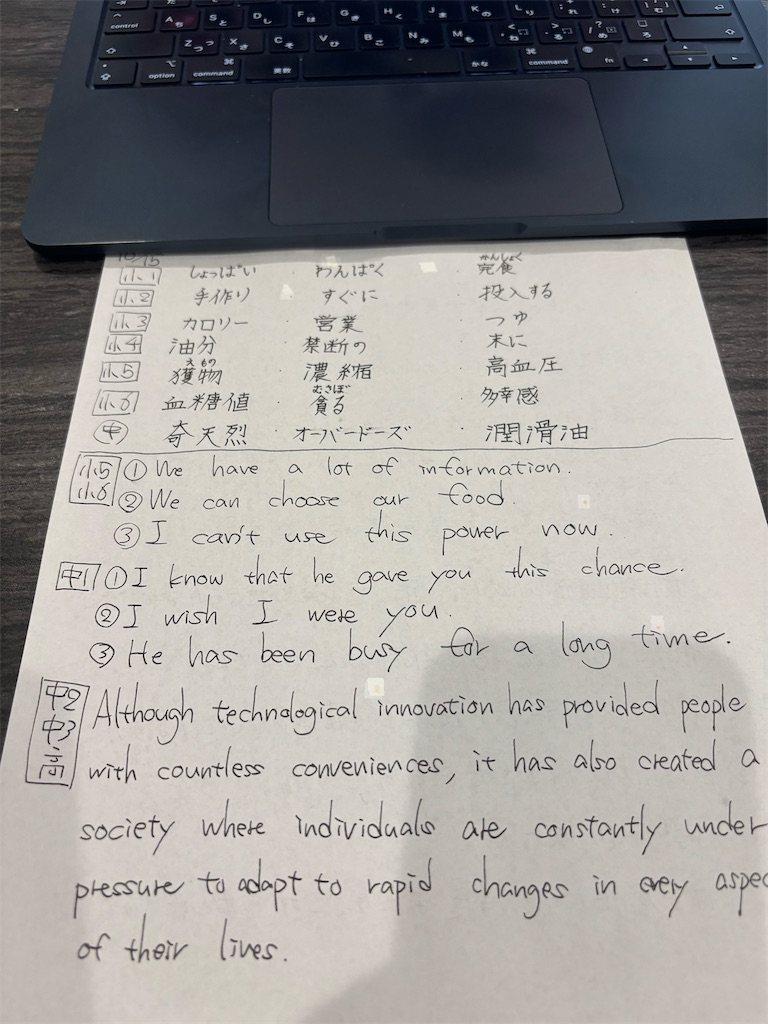 control A ち S と D し F は G き H く J ま K の L り れ け む
Z つ X さ C そ V ひ B こ N み M も ね る め ろ
option command 英数 かな command fn
10/15
小1 しょっぱい ・ わんぱく 完食 かんしょく
小2 手作り ・ すぐに ・ 投入する
小3 カロリー ・ 営業 ・ つゆ
小4 油分 ・ 禁断の ・ 末に
小5 獲物 えもの ・ 濃縮 ・ 高血圧
小6 血糖値 ・ 貪る むさぼ ・ 多幸感
中 奇天烈 ・ オーバードーズ ・ 潤滑油
小5 小6 ① We have a lot of information.
② We can choose our food.
③ I can't use this power now.
中1 ① I know that he gave you this chance.
② I wish I were you.
③ He has been busy for a long time.
中2 中3・高 Although technological innovation has provided people
with countless conveniences, it has also created a
society where individuals are constantly under
pressure to adapt to rapid changes in every aspec
of their lives.